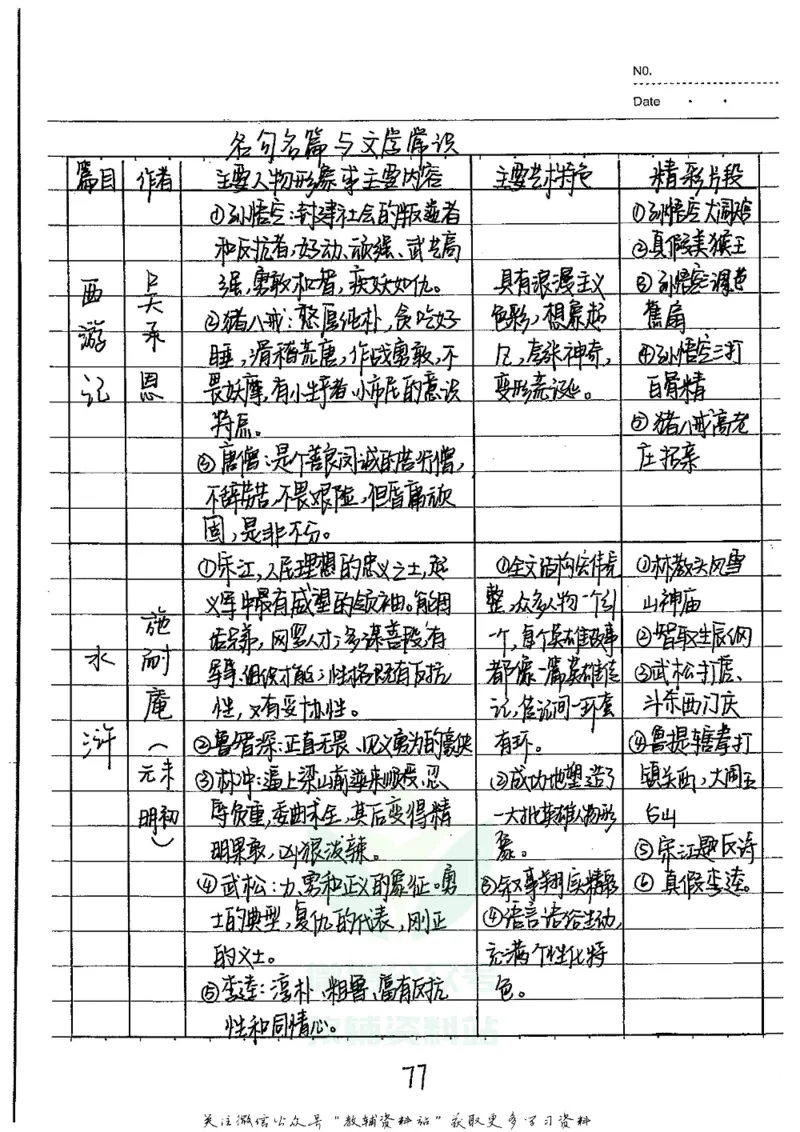 NO.
Date
名句名篇与文学常识
篇目 作者 主要人物形象或主要内容 主要艺术特色 精彩片段
西游记
吴承恩
①孙悟空:封建社会的叛逆者
和反抗者,好动、顽强、武艺高
强,勇敢机智,疾妖如仇。
②猪八戒:憨厚纯朴,贪吃好
睡,滑稽荒唐,作战勇敢,不
畏妖魔,有小生产者、小市民的意识
特点。
③唐僧:是个善良同诚的苦行僧,
不辞劳苦,不畏艰险,但昏庸顽
固,是非不分。
具有浪漫主义
色彩,想象超
凡,夸张神奇,
变形荒诞。
①孙悟空大闹天宫
②真假美猴王
③孙悟空调芭
蕉扇
④孙悟空三打
白骨精
⑤猪八戒高老
庄招亲
水浒
施耐庵(元末明初)
①宋江,人民理想的忠义之士,起
义军中最有威望的领袖。能团
结兄弟,网罗人才;多谋善断,有
领导、组织才能;性格既有反抗
性,又有妥协性。
②鲁智深:正直无畏、见义勇为的豪侠
③林冲:逼上梁山前逆来顺受,忍
辱负重,委曲求全,其后变得精
明果敢,凶狠泼辣。
④武松:力、勇和正义的象征。勇
士的典型,复仇的代表,刚正
的义士。
⑤李逵:淳朴、粗鲁、富有反抗
性和同情心。
①全文结构宏伟完
整,众多人物一个引
一个,每个英雄故事
都像一篇英雄传
记,情节间一环套
有环。
②成功地塑造了
一大批英雄人物形
象。
③叙事翔实精彩
④语言活泼生动,
充满个性化特
色。
①林教头风雪
山神庙
②智取生辰纲
③武松打虎、
斗杀西门庆
④鲁提辖拳打
镇关西,大闹五
台山
⑤宋江题反诗
⑥真假李逵。
77
关注微信公众号"教辅资料站"获取更多学习资料